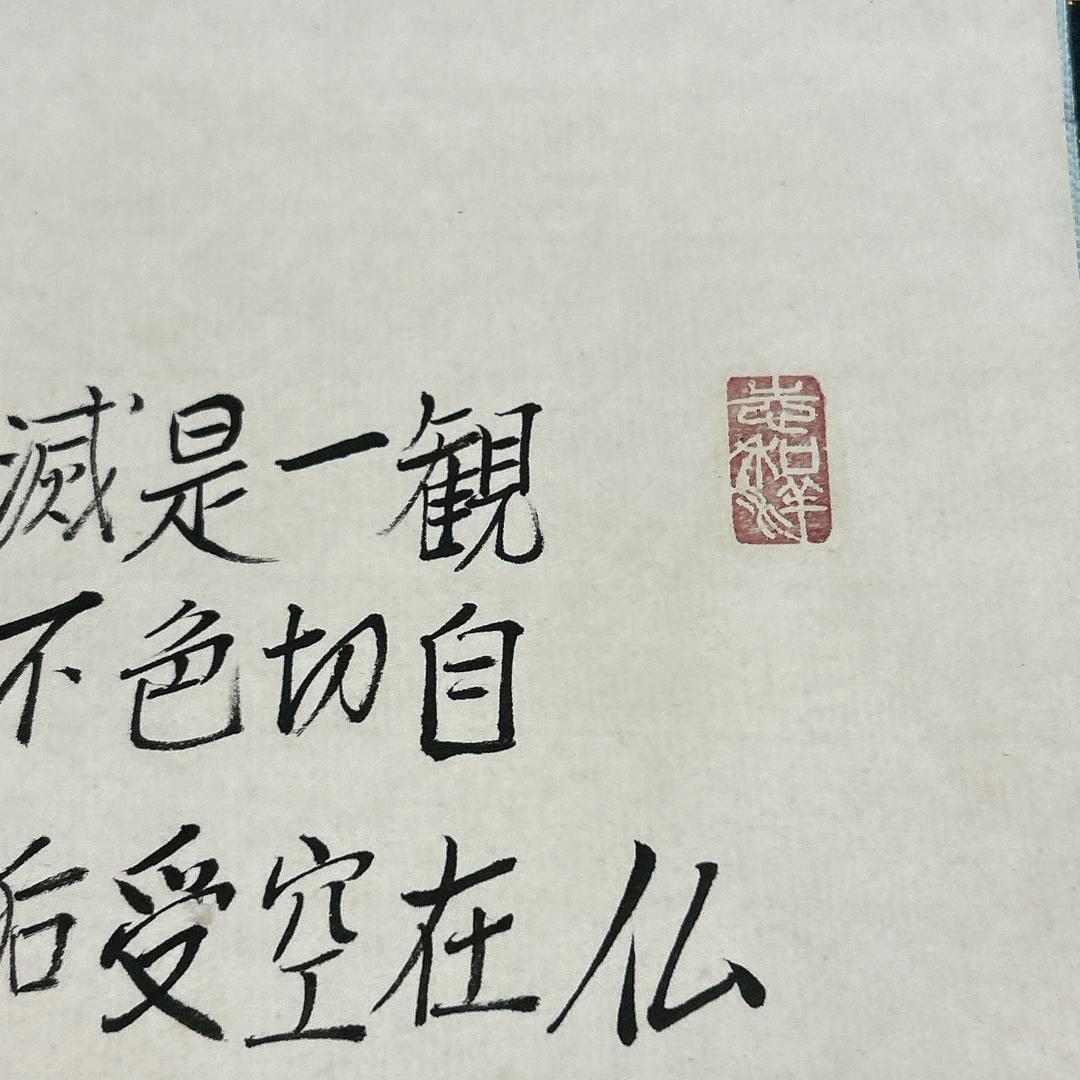 仏
観自在
一切空
是色受
滅不